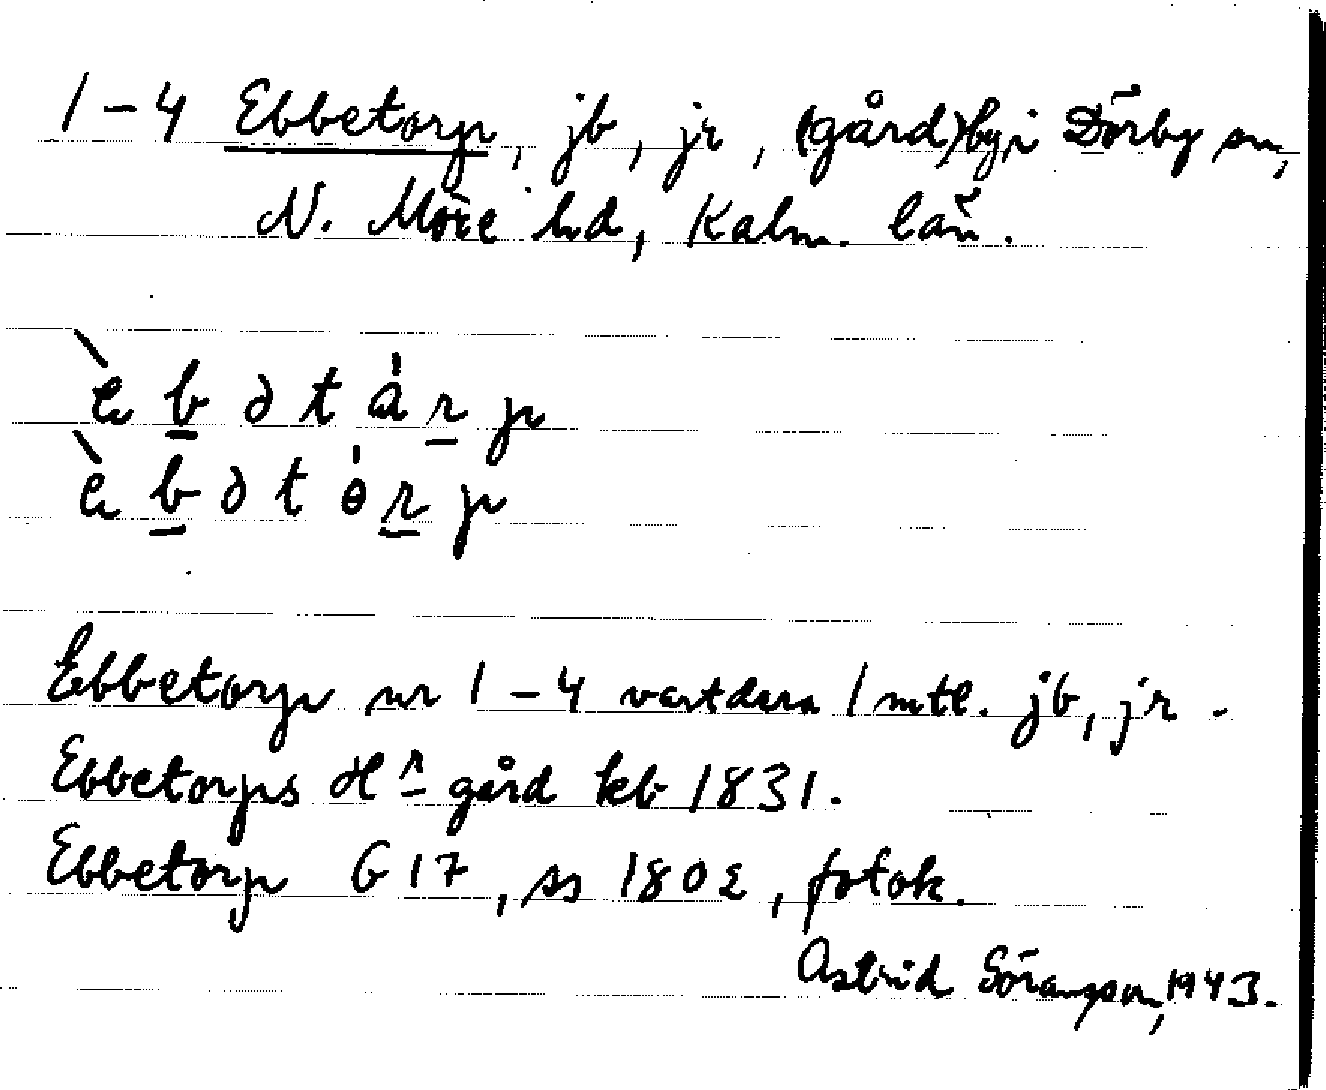 1–4 Ebbetorp, jb, jr, (gård) by i Dörby sn,
N. Möre hd, Kalm. län.
è b ə t ǻ r p
è b ə t ó r p
Ebbetorp nr 1–4 vartdera 1 mtl. jb, jr.
Ebbetorps Hr gård kb 1831.
Ebbetorp G 17, ss 1802, fotok.
Astrid 1943.